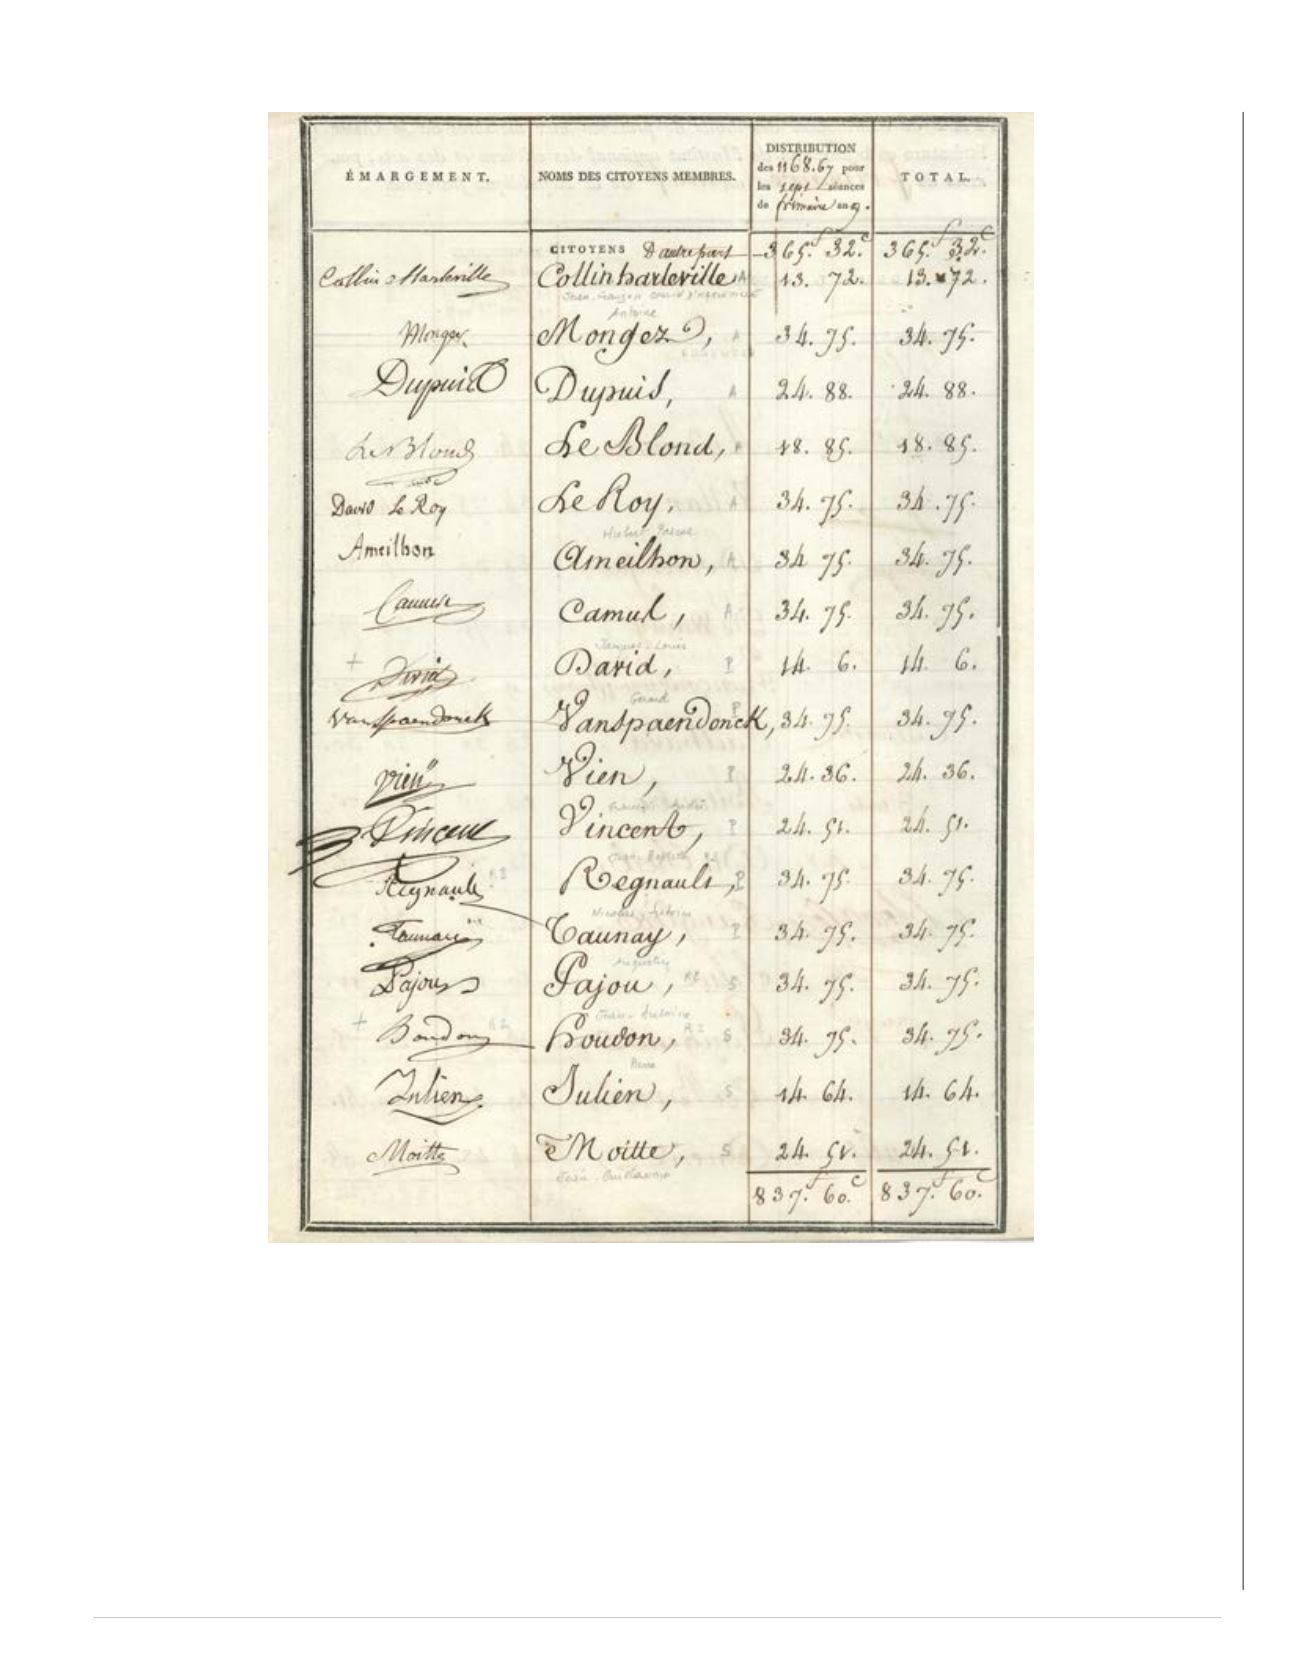 ÉMARGEMENT. NOMS DES CITOYENS MEMBRES. DISTRIBUTION des 1168.67 pour les sept séances de frimaire an 9. TOTAL.
CITOYENS D'autre part 365.f 32.c 365.f 32.c
Collin Harleville Collin harleville A 13. 72. 13. 72.
Antoine
Mongez Mongez, A 34. 75. 34. 75.
Dupuis Dupuis, A 24. 88. 24. 88.
Le Blond Le Blond, 18. 85. 18. 85.
David Le Roy Le Roy, A 34. 75. 34. 75.
Ameilhon Ameilhon, A 34 75. 34. 75.
Camus Camus, A 34. 75. 34. 75.
Jacques-Louis
+ David David, P 14. 6. 14. 6.
Gerard
Vanspaendonck Vanspaendonck, P 34. 75. 34. 75.
Vien Vien, P 24. 36. 24. 36.
François André
Vincent Vincent, P 24. 51. 24. 51.
Jean-Baptiste
Regnault Regnault, P 34. 75. 34. 75.
Nicolas-Antoine
Taunay Taunay, P 34. 75. 34. 75.
Augustin
Pajou Pajou, R2 S 34. 75. 34. 75.
Jean-Antoine
+ Houdon R2 houdon, R2 S 34. 75. 34. 75.
Pierre
Julien Julien, S 14. 64. 14. 64.
Moitte Moitte, S 24. 51. 24. 51.
Jean-Guillaume
837.f 60.c 837.f 60.c